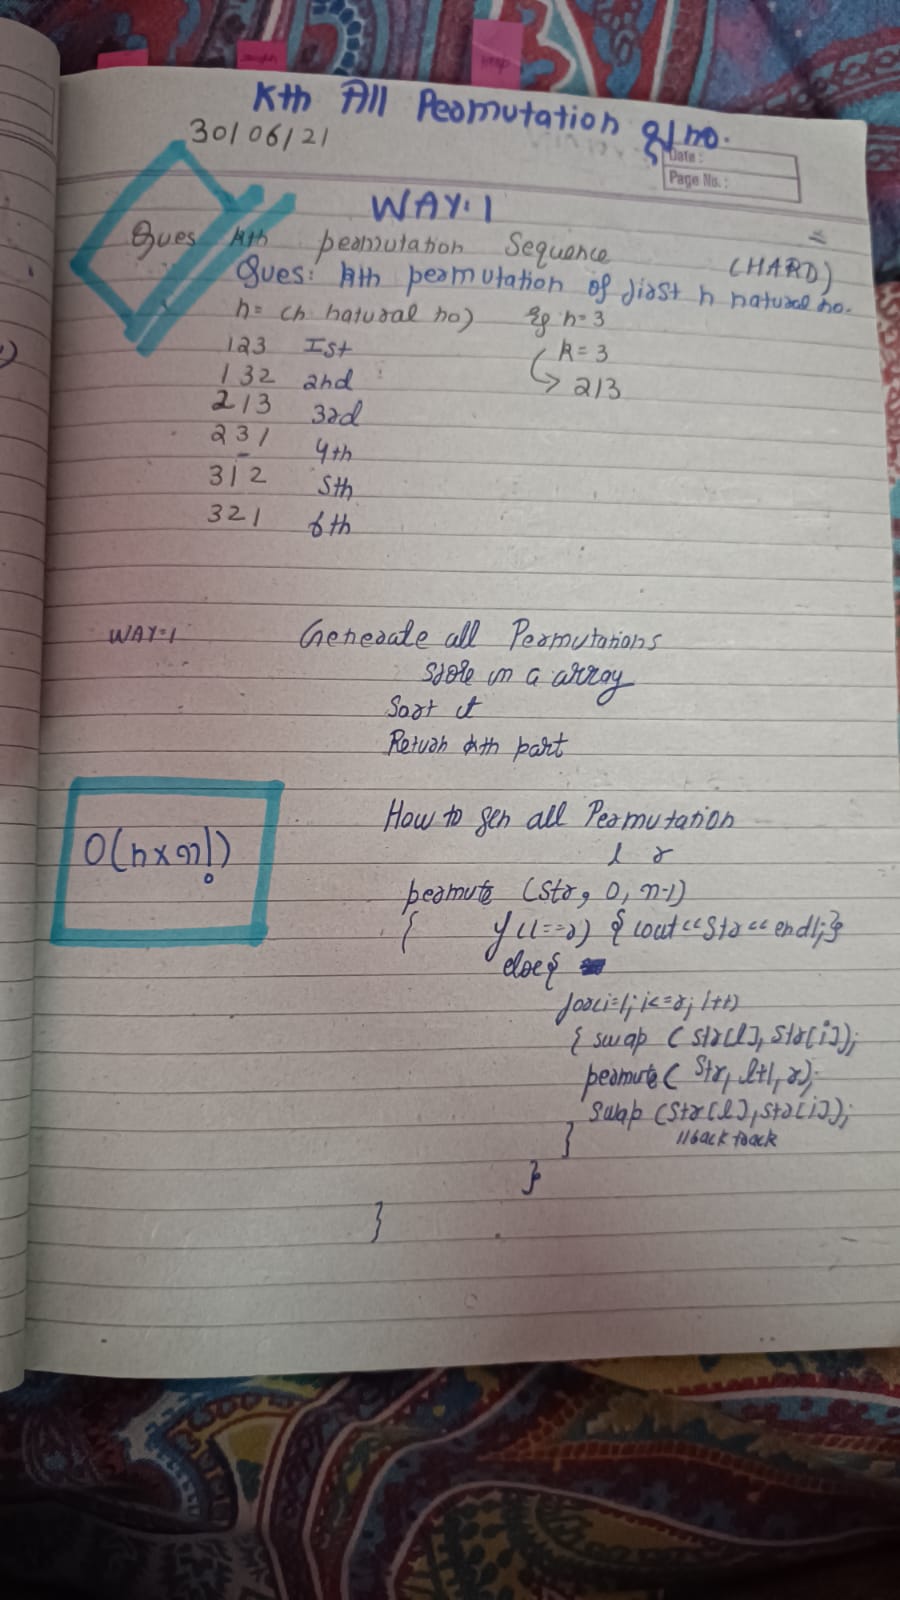 Kth All Permutation of no.
30/06/21
Date :
Page No. :
WAY: 1
Ques kth permutation Sequence (HARD)
Ques: kth permutation of first n natural no.
n = (n natural no) Eg n = 3
123 Ist k = 3
132 2nd → 213
213 3rd
231 4th
312 5th
321 6th
WAY:1 Generate all Permutations
store in a array
Sort it
Return kth part
How to gen all Permutation
O(n x n!)
l r
permute (str, 0, n-1)
{ if (l==r) { cout<<str<<endl;}
else{
for(i=l; i<=r; i++)
{ swap (str[l], str[i]);
permute( str, l+1, r);
swap (str[l], str[i]);
//back track
}
}
}